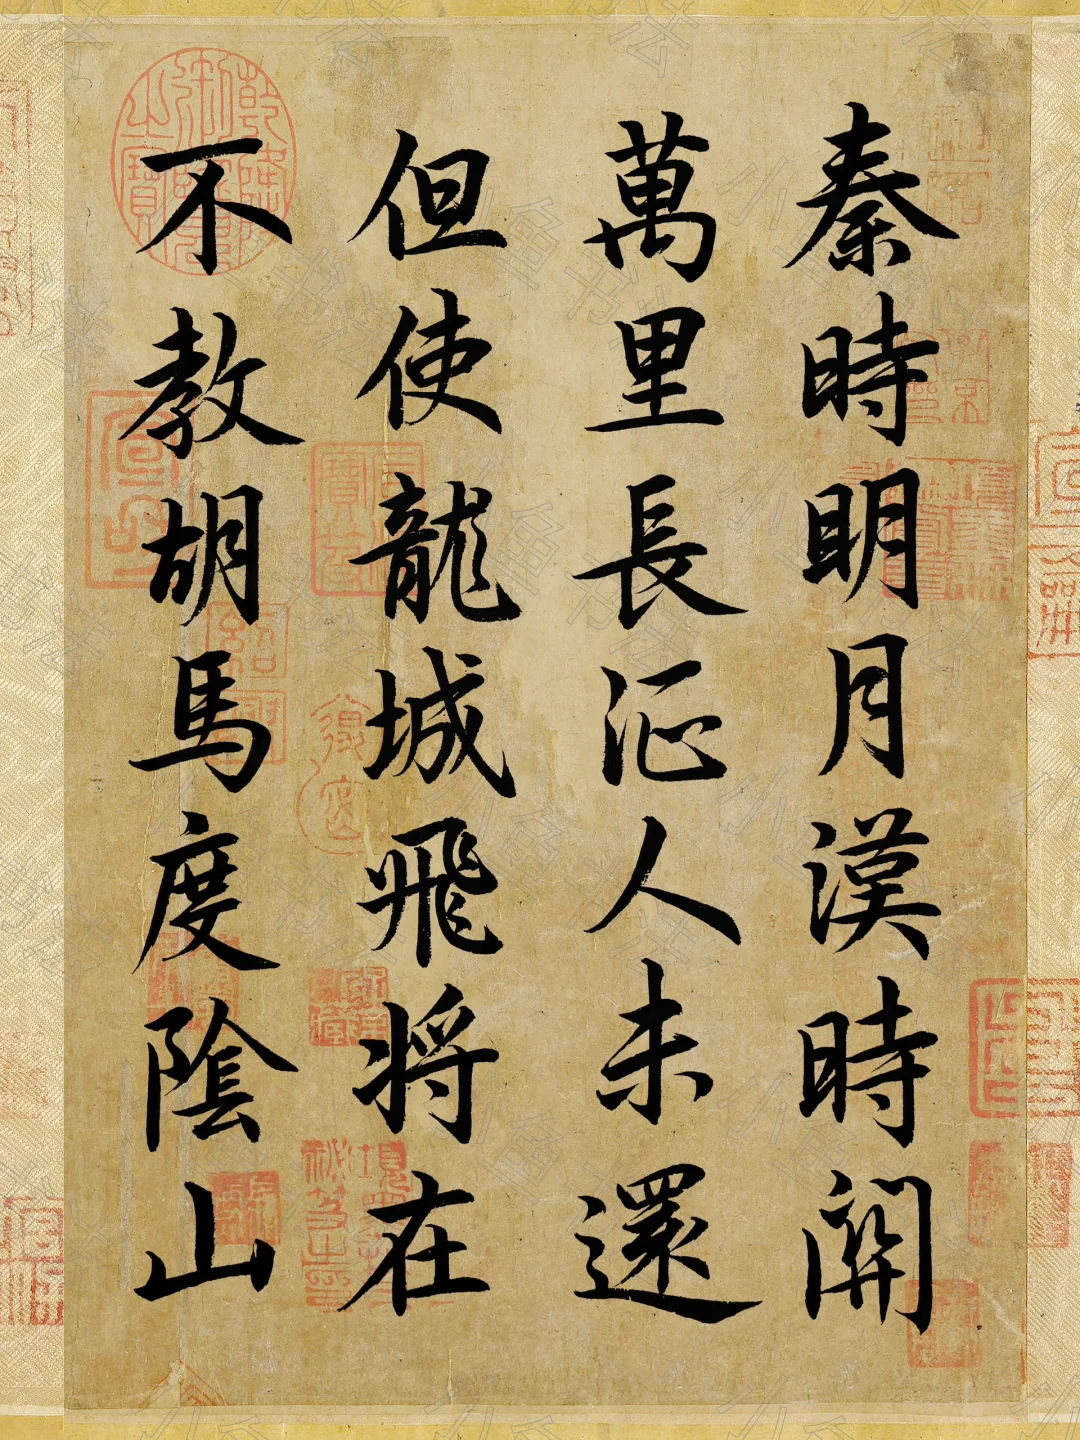 秦時明月漢時關
萬里長征人未還
但使龍城飛將在
不教胡馬度陰山
小鱼书法